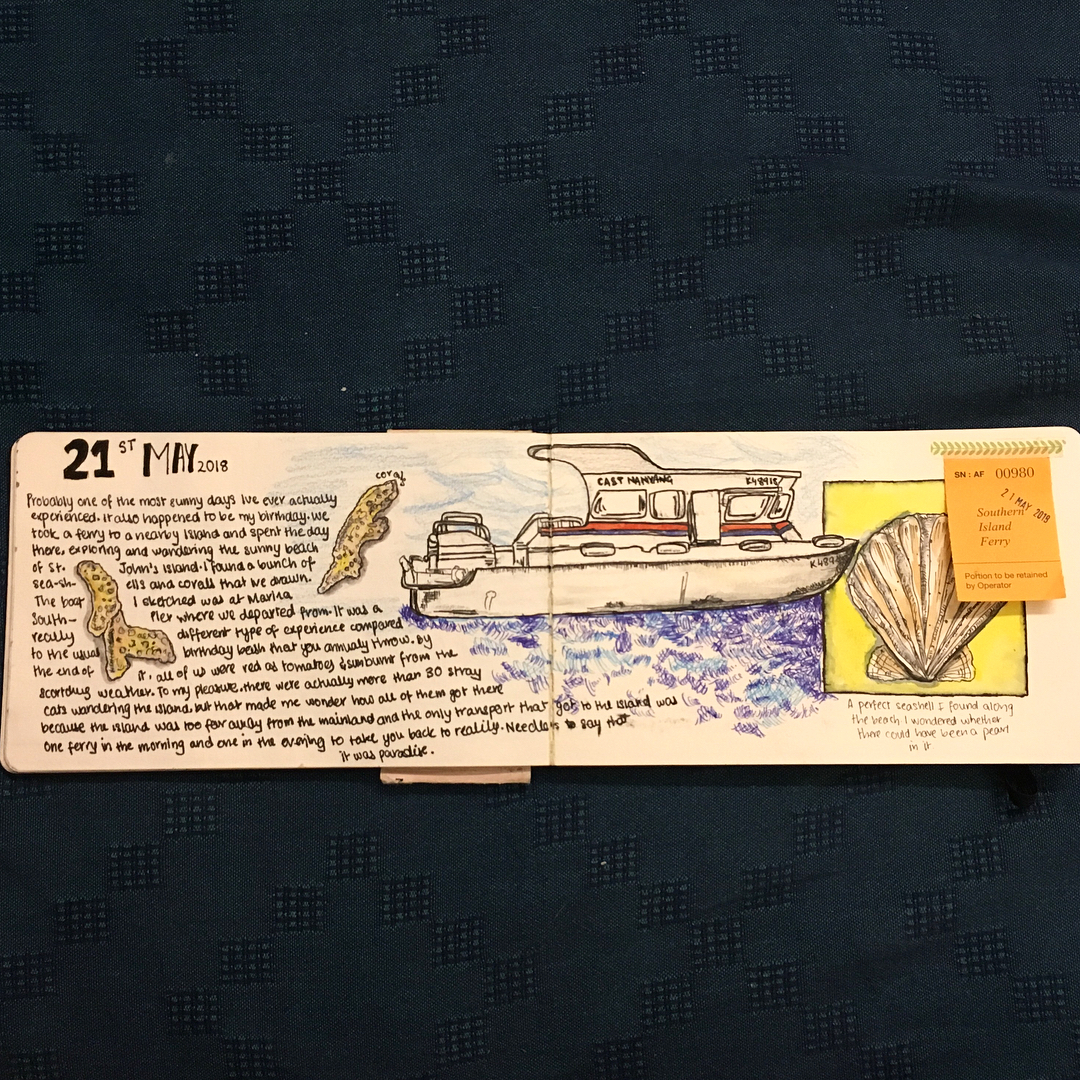 21ST MAY 2018
Probably one of the most sunny days Ive ever actually
experienced. It also happened to be my birthday. we
took a ferry to a nearby Island and spent the day
there, exploring and wandering the sunny beach
of St. John's Island. I found a bunch of
sea-sh- ells and corall that we drawn.
The boat I sketched was at Marina
South- Pier where we departed from. It was a
really different type of experience compared
to the usual birthday bash that you annualy throw. By
the end of it, all of us were red as tomatoes & sunburnt from the
scorthing weather. To my pleasure, there were actually more than 30 stray
cats wandering the island. but that made me wonder how all of them got there
because the island was too far away from the mainland and the only transport that got to the island was
one ferry in the morning and one in the evening to take you back to reality. Needless to say that
it was paradise.
coral
CAST NANYANG
K4891E
K489
SN : AF 00980
21 MAY 2018
Southern
Island
Ferry
Portion to be retained
by Operator
A perfect seashell I found along
the beach I wondered whether
there could have been a pearl
in it